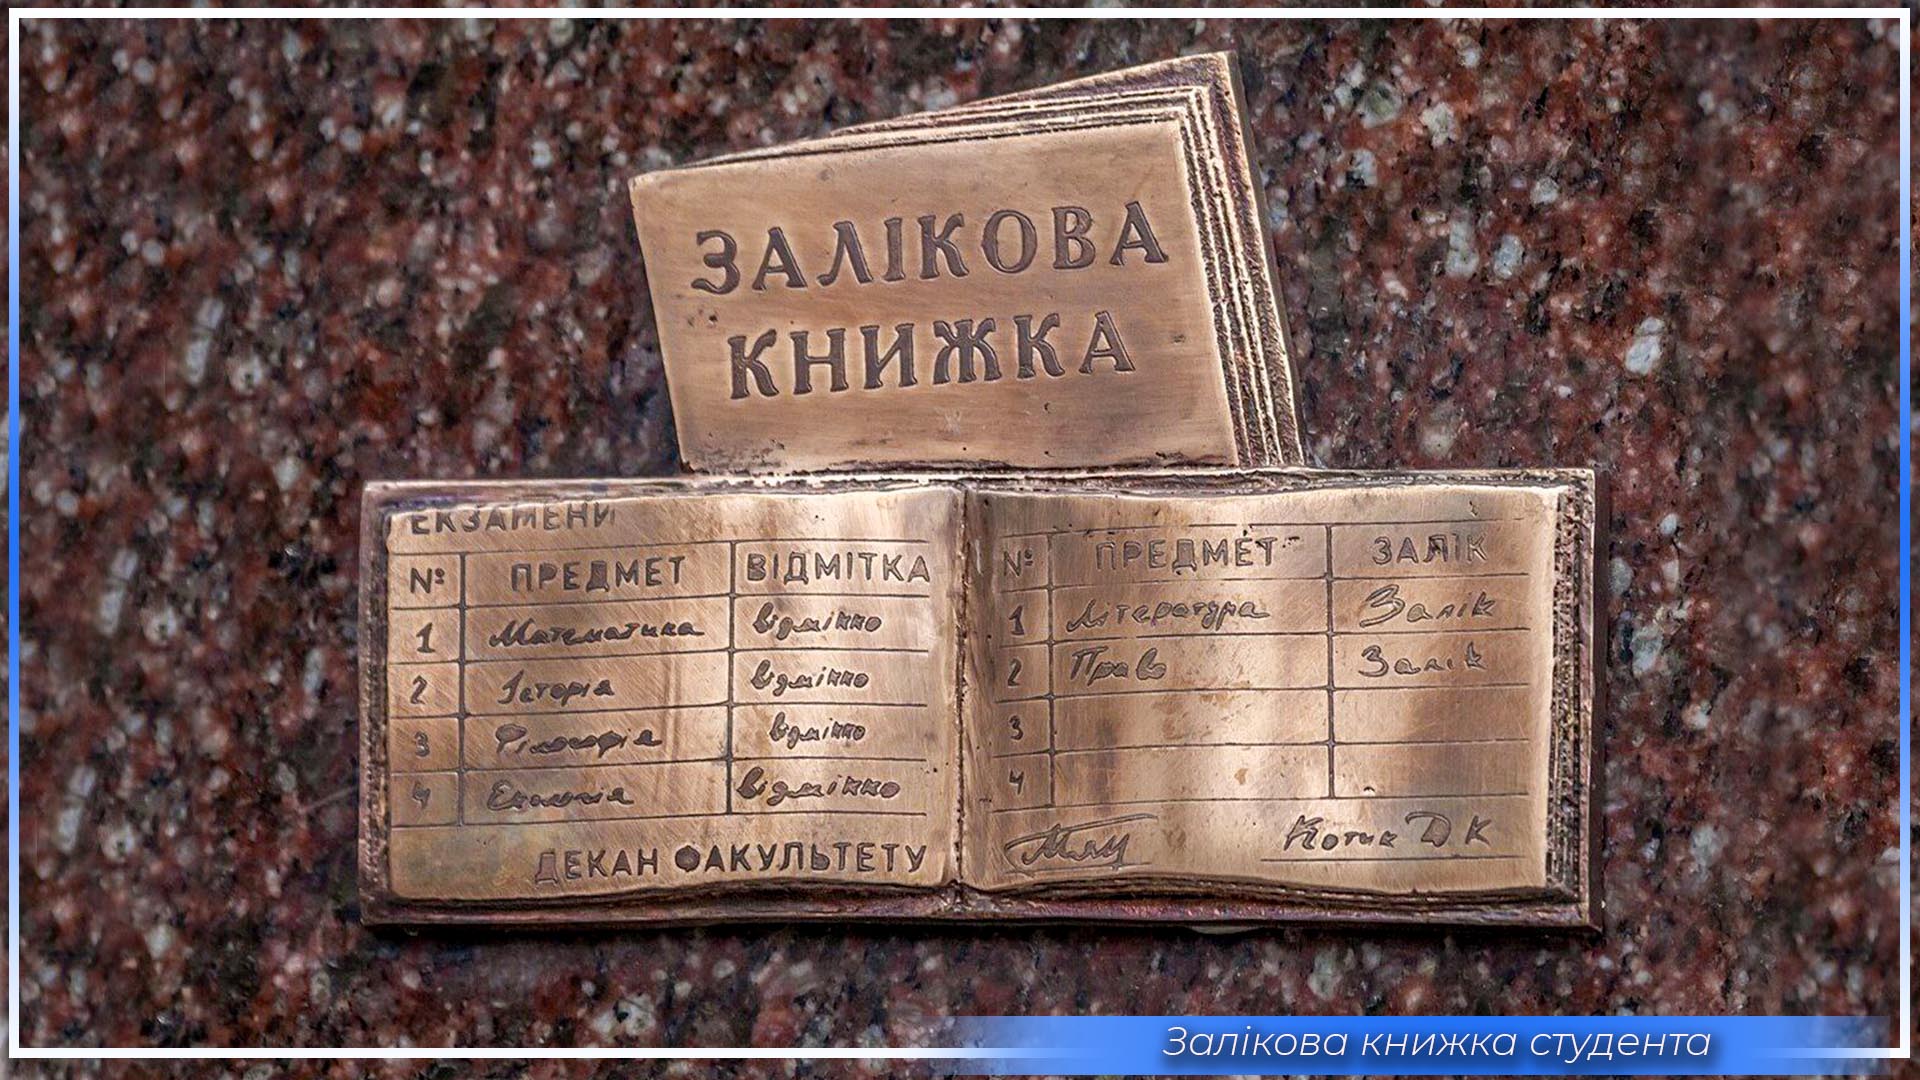 ЗАЛІКОВА
КНИЖКА
ЕКЗАМЕНИ
№ ПРЕДМЕТ ВІДМІТКА
1 Математика відмінно
2 Історія відмінно
3 Філософія відмінно
4 Екологія відмінно
ДЕКАН ФАКУЛЬТЕТУ
№ ПРЕДМЕТ ЗАЛІК
1 Література Залік
2 Право Залік
3
4
Котик Д К
Залікова книжка студента